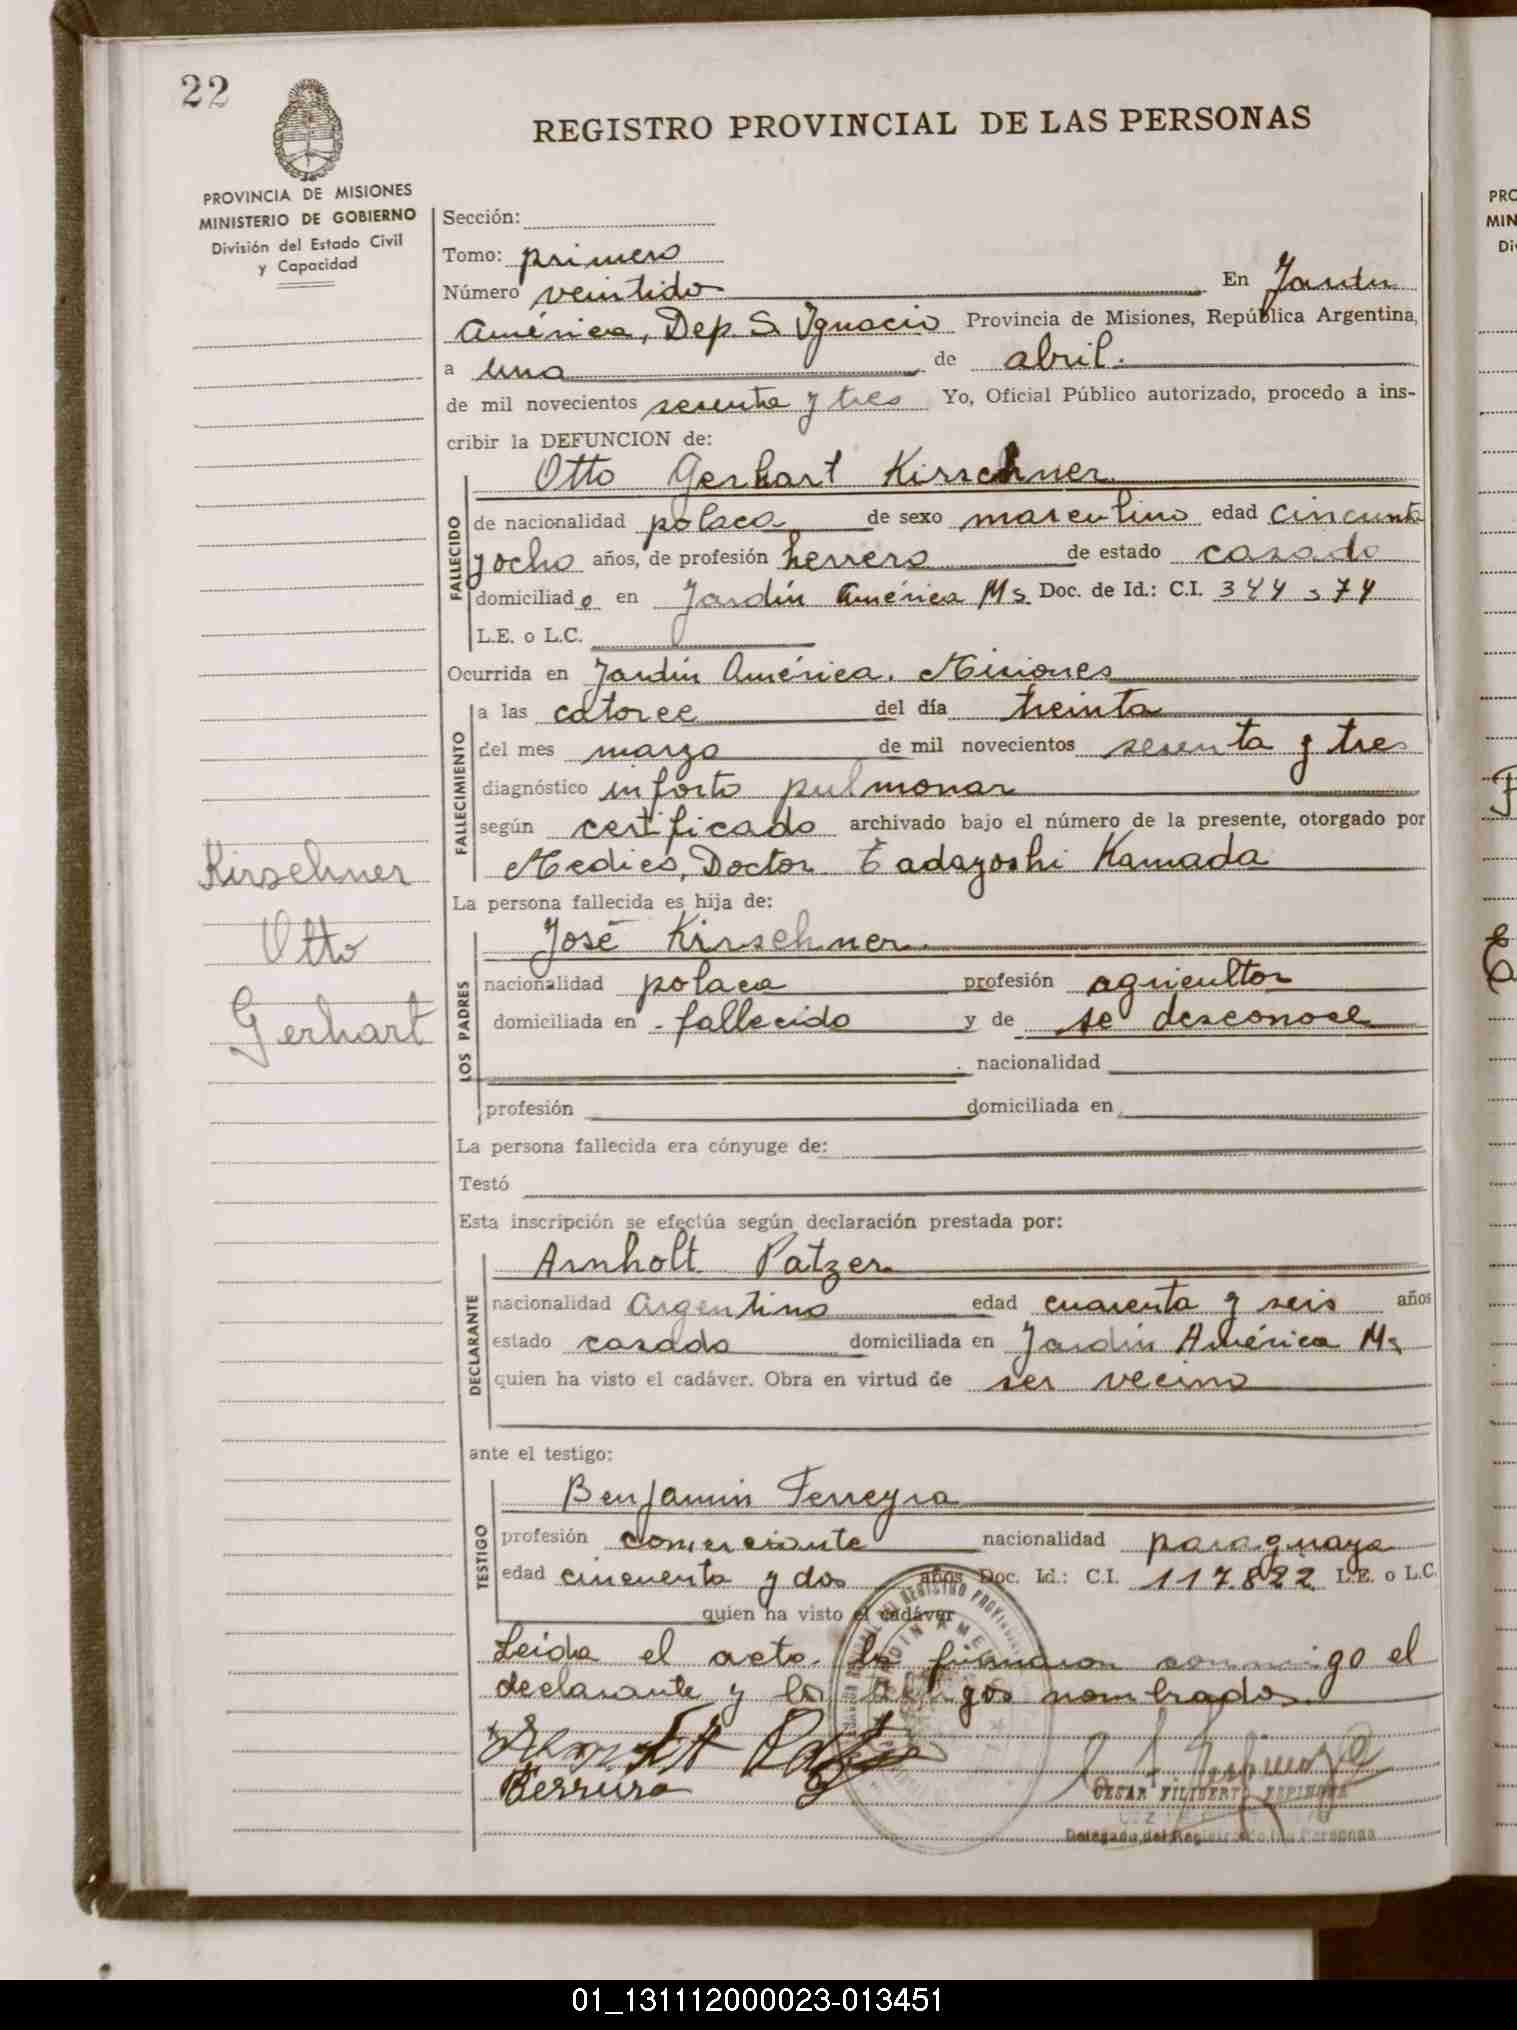 22
REGISTRO PROVINCIAL DE LAS PERSONAS
PROVINCIA DE MISIONES
MINISTERIO DE GOBIERNO
División del Estado Civil
y Capacidad
Sección:
Tomo: primero
Número veintido En Jardin
América, Dep. S. Ygnacio Provincia de Misiones, República Argentina,
a uno de abril.
de mil novecientos sesenta y tres Yo, Oficial Público autorizado, procedo a ins-
cribir la DEFUNCION de:
FALLECIDO
Otto Gerhart Kirschner
de nacionalidad polaca de sexo masculino edad cincuenta
y ocho años, de profesión herrero de estado casado
domiciliado en Jardín América Ms. Doc. de Id.: C.I.
L.E. o L.C.
Ocurrida en Jardín América. Misiones
FALLECIMIENTO
a las catorce del día treinta
del mes marzo de mil novecientos sesenta y tres
diagnóstico inforto pulmonar
según certificado archivado bajo el número de la presente, otorgado por
Medico, Doctor Tadayoshi Kamada
La persona fallecida es hija de:
LOS PADRES
José Kirschner
nacionalidad polaca profesión agricultor
domiciliada en fallecido y de se desconose
nacionalidad
profesión domiciliada en
La persona fallecida era cónyuge de:
Testó
Esta inscripción se efectúa según declaración prestada por:
DECLARANTE
Arnholt Patzer
nacionalidad Argentino edad cuarenta y seis años
estado casado domiciliada en Jardín América Ms
quien ha visto el cadáver. Obra en virtud de ser vecino
ante el testigo:
TESTIGO
Benjamin Ferreyra
profesión comerciante nacionalidad paraguaya
edad cincuenta y dos años Doc. Id.: C.I. 117.822 L.E. o L.C.
quien ha visto el cadáver
Leida el acta. la firmaron conmigo el
declarante y los testigos nombrados.
CESAR FILIBERTO ESPINOZA
Delegado del Registro de las Personas
Kirschner
Otto
Gerhart
PRO
MIN
Di
01_131112000023-013451